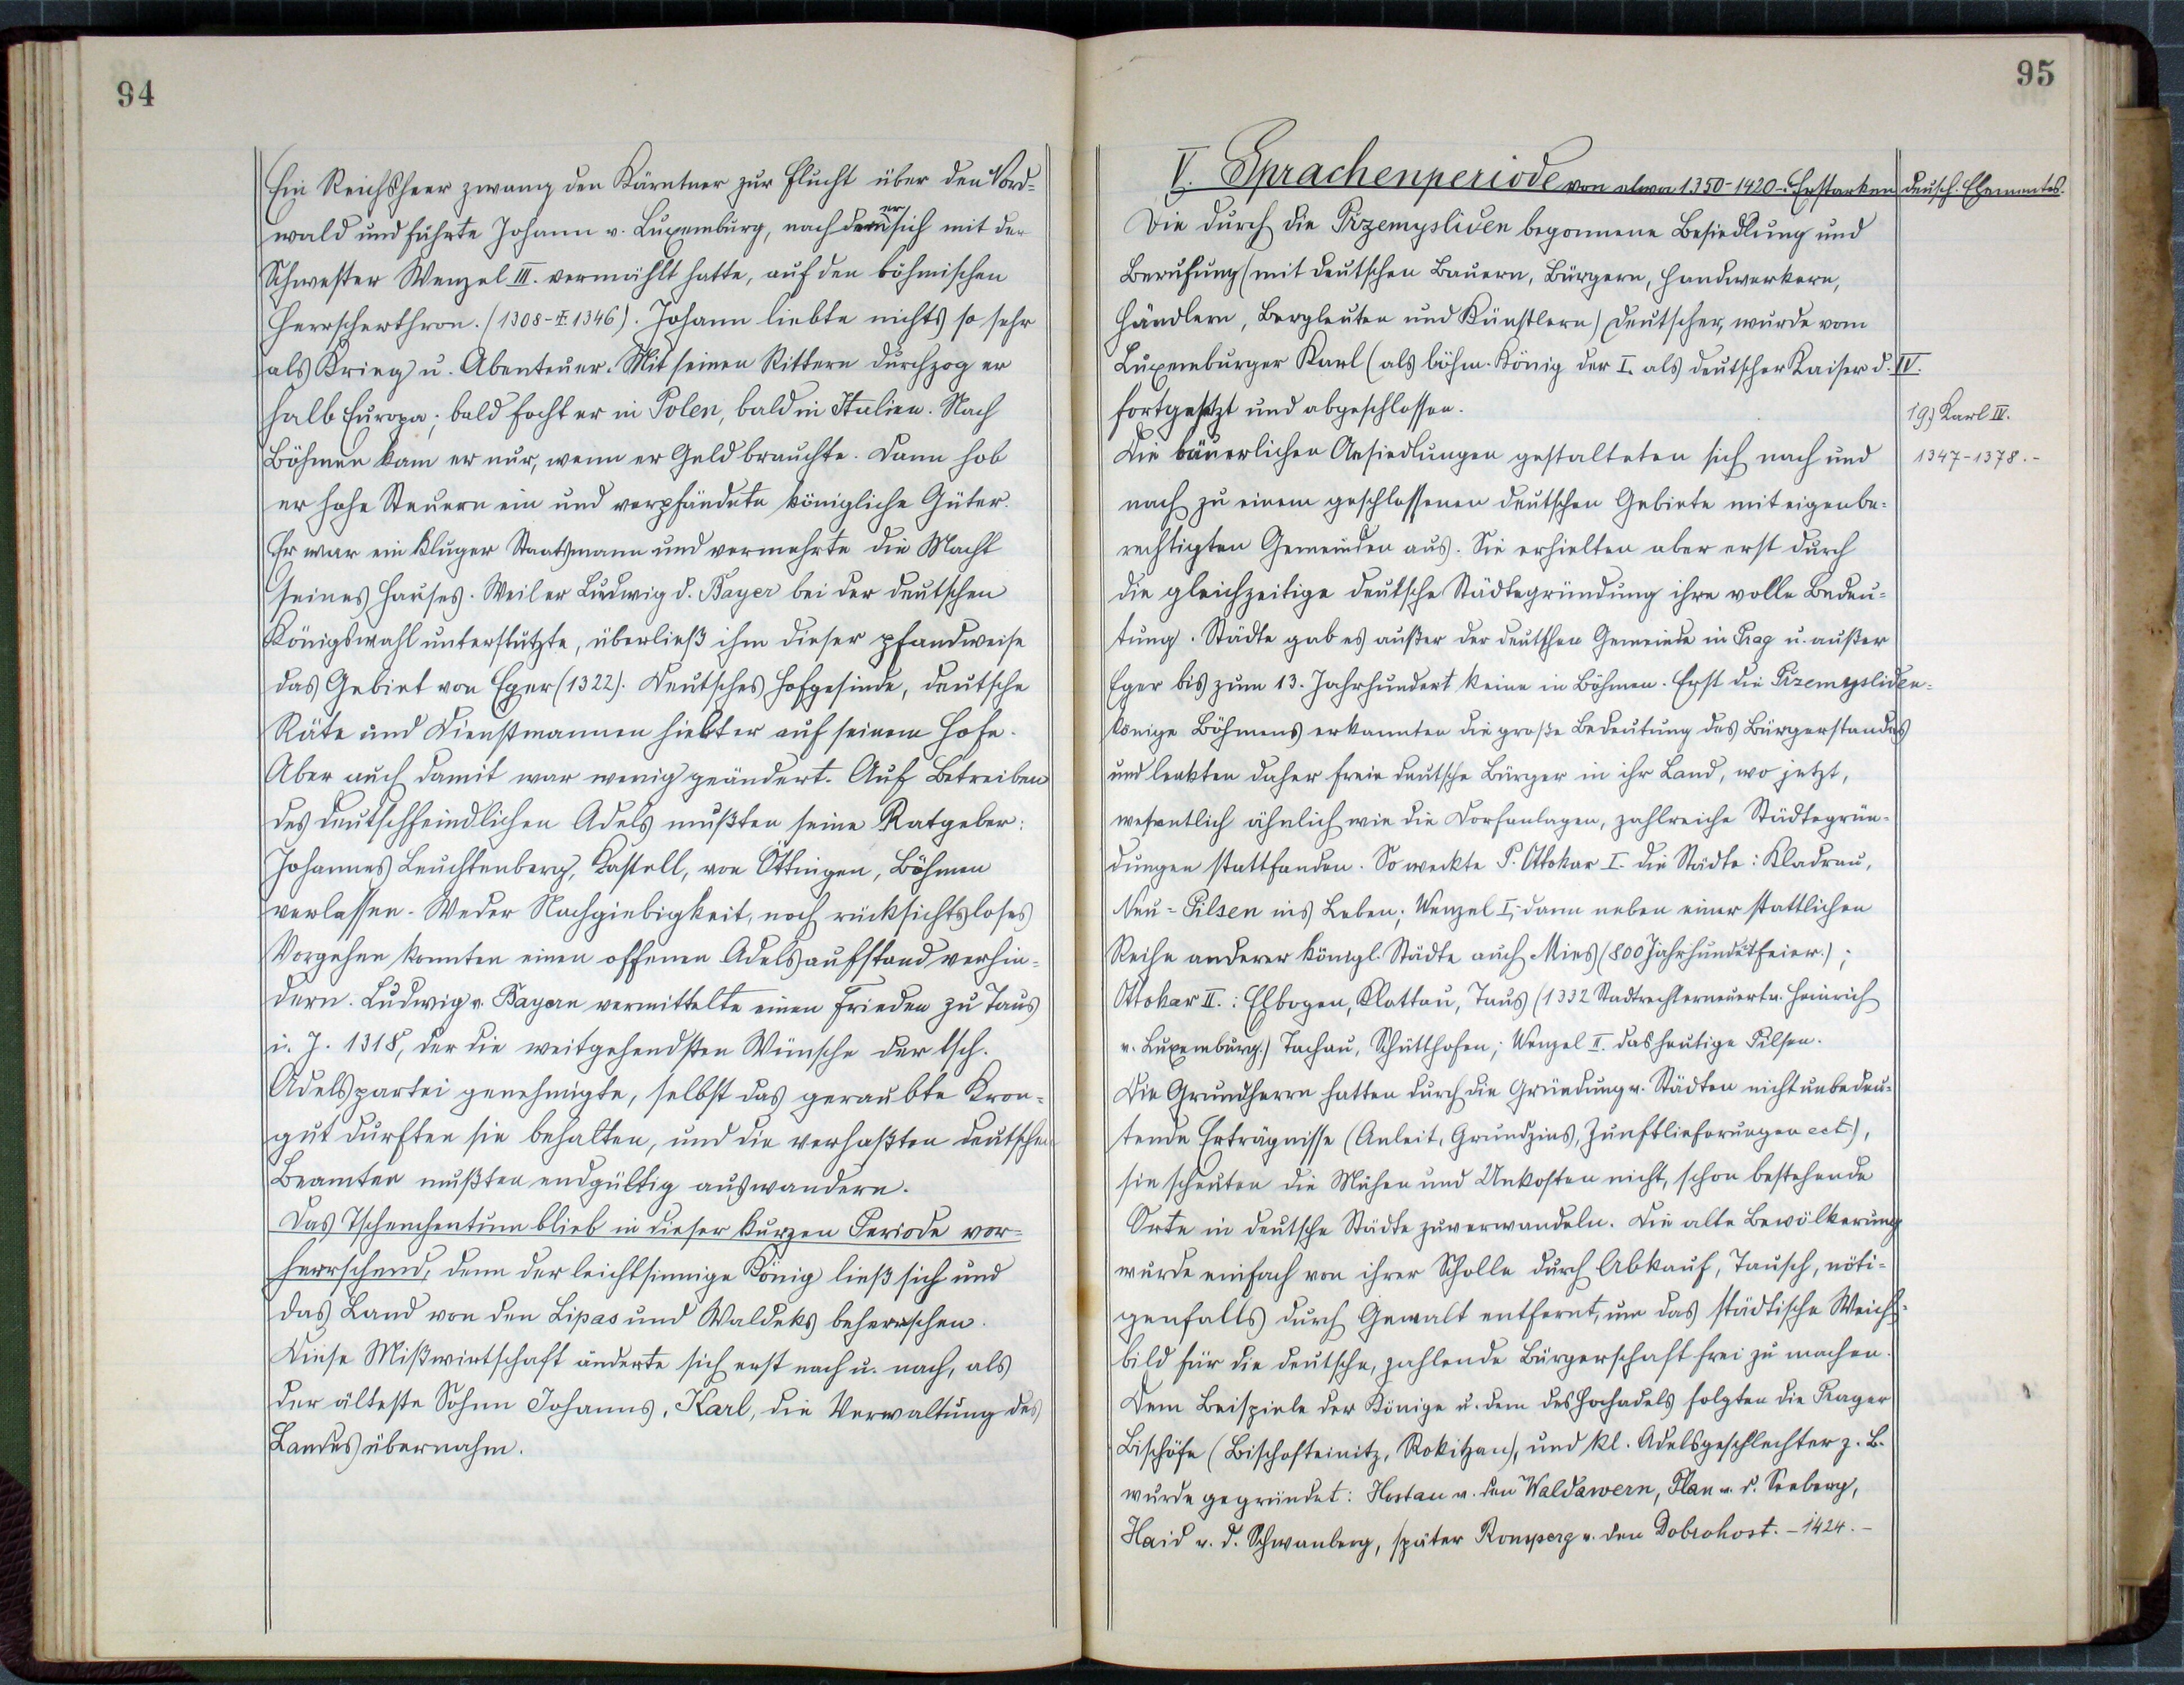 94
Ein Reichsheer zwang den Kärntner zur Flucht über den Nord-
wald und führte Johann v. Luxemburg, nachdem er sich mit der
Schwester Wenzel III. vermählt hatte, auf den böhmischen
Herrscherthron. (1308-‡1346). Johann liebte nichts so sehr
als Krieg u. Abenteuer. Mit seinen Rittern durchzog er
halb Europa; bald focht er in Polen, bald in Italien. Nach
Böhmen kam er nur, wenn er Geld brauchte. Dann hob
er hohe Steuern ein und verpfändete königliche Güter.
Er war ein kluger Staatsmann und vermehrte die Macht
seines Hauses. Weil er Ludwig d. Bayer bei der deutschen
Königswahl unterstützte, überließ ihm dieser pfandweise
das Gebiet von Eger (1322). Deutsches Hofgesinde, deutsche
Räte und Dienstmannen hielt er auf seinem Hofe.
Aber auch damit war wenig geändert. Auf Betreiben
des deutschfeindlichen Adels mußten seine Ratgeber:
Johannes Leuchtenberg, Kastell, von Öttingen, Böhmen
verlassen. Weder Nachgiebigkeit, noch rücksichtsloses
Vorgehen konnten einen offenen Adelsaufstand verhin-
dern. Ludwig v. Bayern vermittelte einen Frieden zu Taus
i. J. 1318, der die weitgehendsten Wünsche der tsch.
Adelspartei genehmigte, selbst das geraubte Kron-
gut durften sie behalten, und die verhaßten deutschen
Beamten mußten endgültig auswandern.
Das Tschechentum blieb in dieser kurzen Periode vor-
herrschend, denn der leichtsinnige König ließ sich und
das Land von den Lipas und Waldeks beherrschen.
Diese Mißwirtschaft änderte sich erst nach u. nach, als
der älteste Sohn Johanns, Karl, die Verwaltung des
Landes übernahm.
95
V. Sprachenperiode von etwa 1350-1420-: Erstarken deutsch. Elementes.
Die durch die Przemysliden begonnene Besiedlung und
Berufung (mit deutschen Bauern, Bürgern, Handwerkern,
Händlern, Bergleuten und Künstlern) Deutscher, wurde vom
Luxemburger Karl (als böhm. König der I. als deutscher Kaiser d. IV.
fortgesetzt und abgeschlossen.
19) Karl IV.
1347-1378.-
Die bäuerlichen Ansiedlungen gestalteten sich nach und
nach zu einem geschlossenen deutschen Gebiete mit eigenbe-
rechtigten Gemeinden aus. Sie erhielten aber erst durch
die gleichzeitige deutsche Städtegründung ihre volle Bedeu-
tung. Städte gab es außer der deutschen Gemeinde in Prag u. außer
Eger bis zum 13. Jahrhundert keine in Böhmen. Erst die Przemysliden-
könige Böhmens erkannten die große Bedeutung des Bürgerstandes
und lenkten daher freie deutsche Bürger in ihr Land, wo jetzt,
wesentlich ähnlich wie die Dorfanlagen, zahlreiche Städtegrün-
dungen stattfanden. So weckte P. Ottokar I. die Städte: Kladrau,
Neu-Pilsen ins Leben; Wenzel I; dann neben einer stattlichen
Reihe anderer königl. Städte auch Mies (800 Jahrhundertfeier);
Ottokar II.: Elbogen, Klattau, Taus (1332 Stadtrecht erneuert v. Heinrich
v. Luxemburg.) Tachau, Schütthofen; Wenzel II. das heutige Pilsen.
Die Grundherrn hatten durch die Gründung v. Städten nicht unbedeu-
tende Erträgnisse (Anleit, Grundzins, Zunftlieferungen ect.),
sie scheuten die Mühen und Unkosten nicht, schon bestehende
Orte in deutsche Städte zuverwandeln. Die alte Bevölkerung
wurde einfach von ihrer Scholle durch Abkauf, Tausch, nöti-
genfalls durch Gewalt entfernt, um das städtische Weich-
bild für die deutsche, zahlende Bürgerschaft frei zu machen.
Dem Beispiele der Könige u. dem des Hochadels folgten die Prager
Bischöfe (Bischofteinitz, Rokitzan), und kl. Adelsgeschlechter z. B.
wurde gegründet: Hostau v. den Waldawern, Plan v. d. Seeberg,
Haid v. d. Schwanberg, später Ronsperg v. den Dobrohost. -1424.-